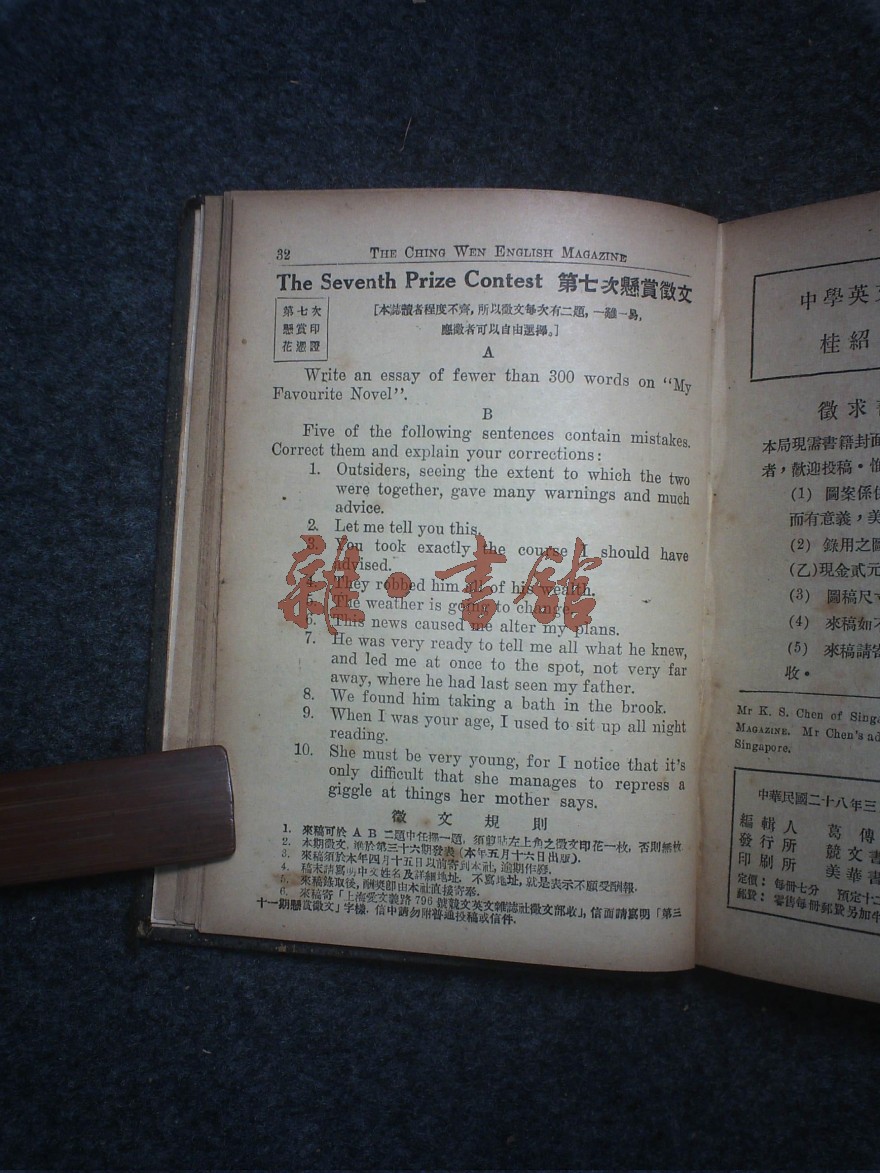 32 THE CHING WEN ENGLISH MAGAZINE
The Seventh Prize Contest 第七次懸賞徵文
第七次
懸賞印
花憑證
[本誌讀者程度不齊，所以徵文每次有二題，一難一易，
應徵者可以自由選擇。]
A
Write an essay of fewer than 300 words on “My
Favourite Novel”.
B
Five of the following sentences contain mistakes.
Correct them and explain your corrections:
1. Outsiders, seeing the extent to which the two
were together, gave many warnings and much
advice.
2. Let me tell you this.
3. You took exactly the course I should have
advised.
4. They robbed him all of his wealth.
5. The weather is going to change.
6. This news caused me alter my plans.
7. He was very ready to tell me all what he knew,
and led me at once to the spot, not very far
away, where he had last seen my father.
8. We found him taking a bath in the brook.
9. When I was your age, I used to sit up all night
reading.
10. She must be very young, for I notice that it's
only difficult that she manages to repress a
giggle at things her mother says.
徵文規則
1. 來稿可於 A B 二題中任擇一題，須剪貼左上角之徵文印花一枚，否則無效
2. 本期徵文，準於第三十六期發表(本年五月十六日出版).
3. 來稿須於本年四月十五日以前寄到本社，逾期作廢.
4. 稿末請寫明中文姓名及詳細地址，不寫地址，就是表示不願受酬報.
5. 來稿錄取後，酬獎卽由本社直接寄奉.
6. 來稿寄「上海愛文義路 796 號競文英文雜誌社徵文部收」，信面請寫明「第三
十一期懸賞徵文」字樣，信中請勿附普通投稿或信件.
雜·書館
中學英文
桂紹
徵求書
本局現需書籍封面
者，歡迎投稿·
(1) 圖案係
而有意義，美
(2) 錄用之圖
(乙)現金貳元
(3) 圖稿尺寸
(4) 來稿如不
(5) 來稿請寄
收·
Mr K. S. Chen of Singa
MAGAZINE. Mr Chen's ad
Singapore.
中華民國二十八年三
編輯人 葛傳
發行所 競文書
印刷所 美華書
定價：每冊七分 預定十二
郵費：零售每冊郵費另加